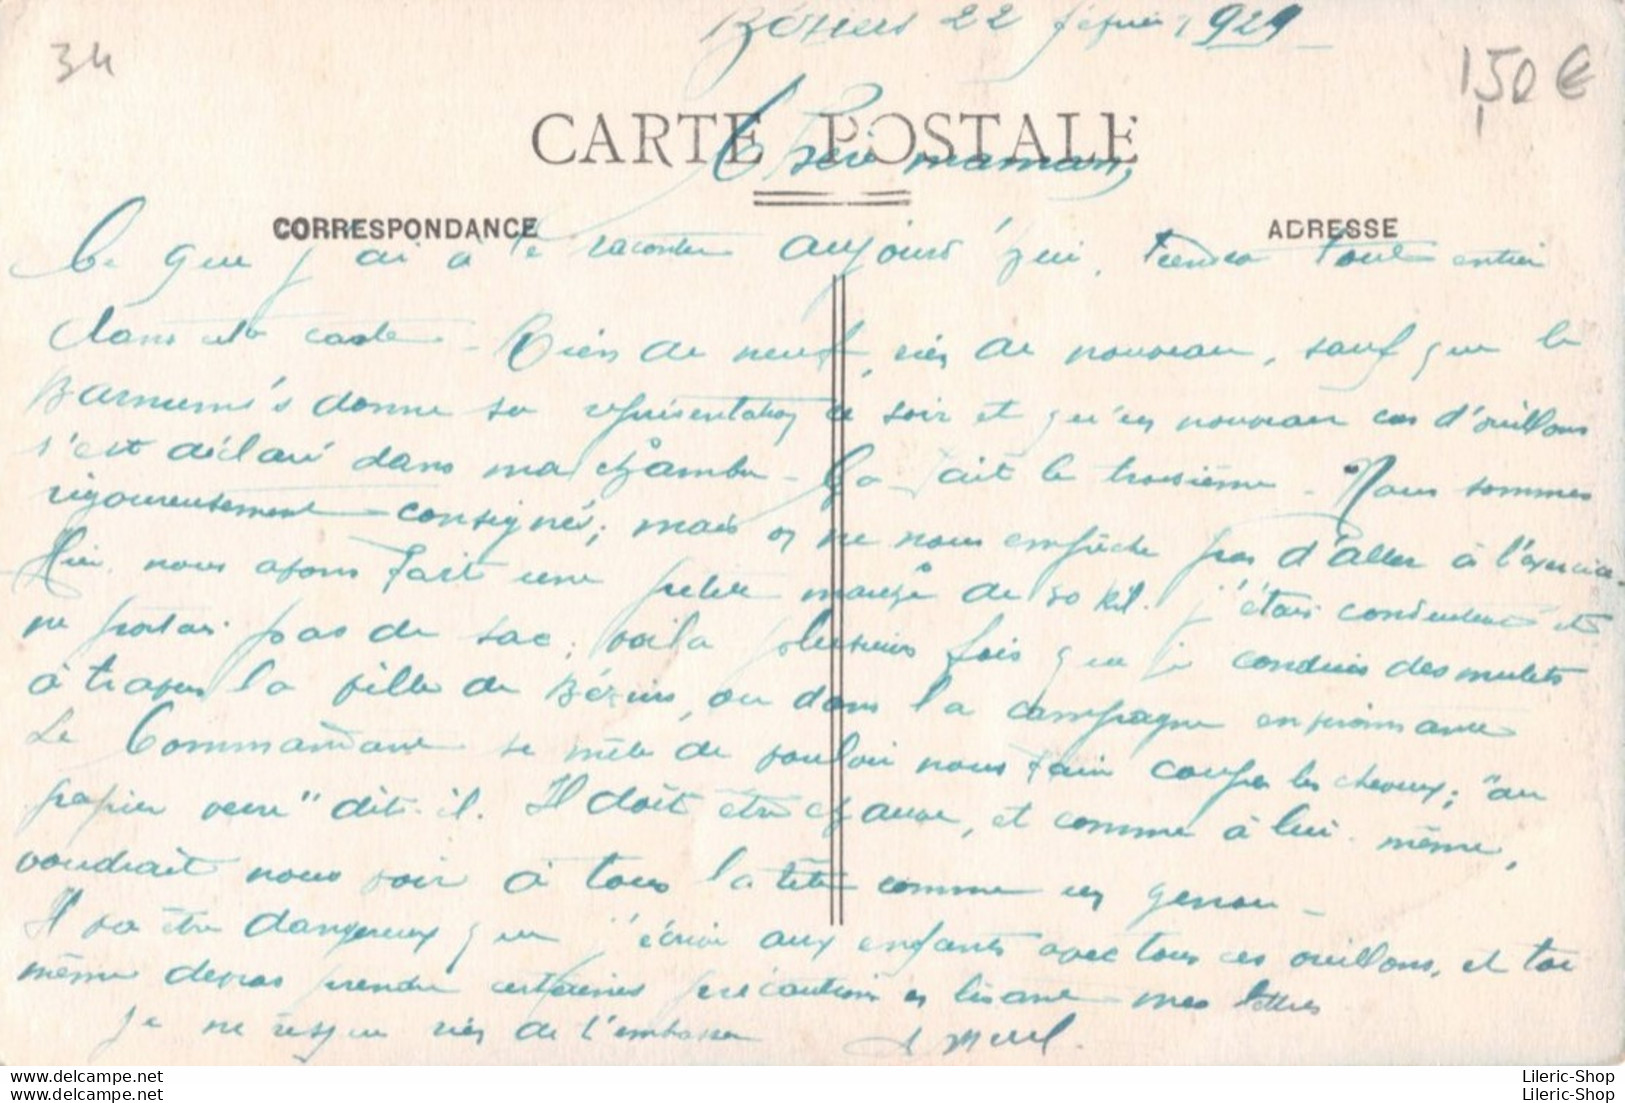 Béziers 22 février 1921
34
1,50 €
CARTE POSTALE
Chère maman,
CORRESPONDANCE
ADRESSE
Ce que j'ai à te raconter aujourd'hui, tiendra tout entier
dans cette carte. Rien de neuf, rien de nouveau, sauf que le
Barnum's donne sa représentation ce soir et qu'un nouveau cas d'oreillons
s'est déclaré dans ma chambre. Ça fait le troisième. Nous sommes
rigoureusement consignés; mais on ne nous empêche pas d'aller à l'exercice.
Hier, nous avons fait une petite marche de 20 kil. j'étais conducteur et
ne portais pas de sac; voilà plusieurs fois que je conduis des mulets
à travers la ville de Béziers, ou dans la campagne environnante
Le Commandant se mêle de vouloir nous faire couper les cheveux; "au
papier verre" dit-il. Il doit être chauve, et comme à lui-même,
voudrait nous voir à tous la tête comme un genou.
Il va être dangereux que j'écrive aux enfants avec tous ces oreillons, et toi
même devras prendre certaines précautions en lisant mes lettres
je ne risque rien de t'embrasser
Lileric-Shop
Lileric-Shop
https://www.delcampe.net
https://www.delcampe.net